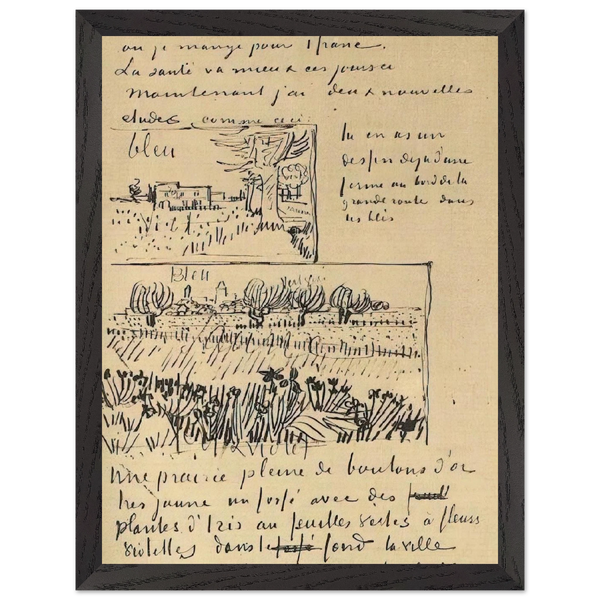 ou je mange pour 1 franc.
La santé va mieux ces jours ci
Maintenant j'ai deux nouvelles
etudes comme ceci:
bleu
tu en as un
dessin deja d'une
ferme au bord de la
grande route dans
les blés
Bleu
violet
Une prairie pleine de boutons d'or
tres jaune un fossé avec des
plantes d'Iris au feuilles vertes à fleurs
violettes dans le fond la ville